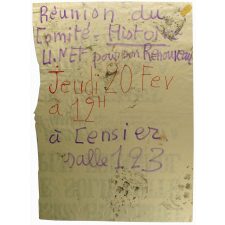 Réunion du
Comité-Histoire
U.NEF pour un Renouveau
Jeudi 20 Fev
à 12H
à Censier
salle 123